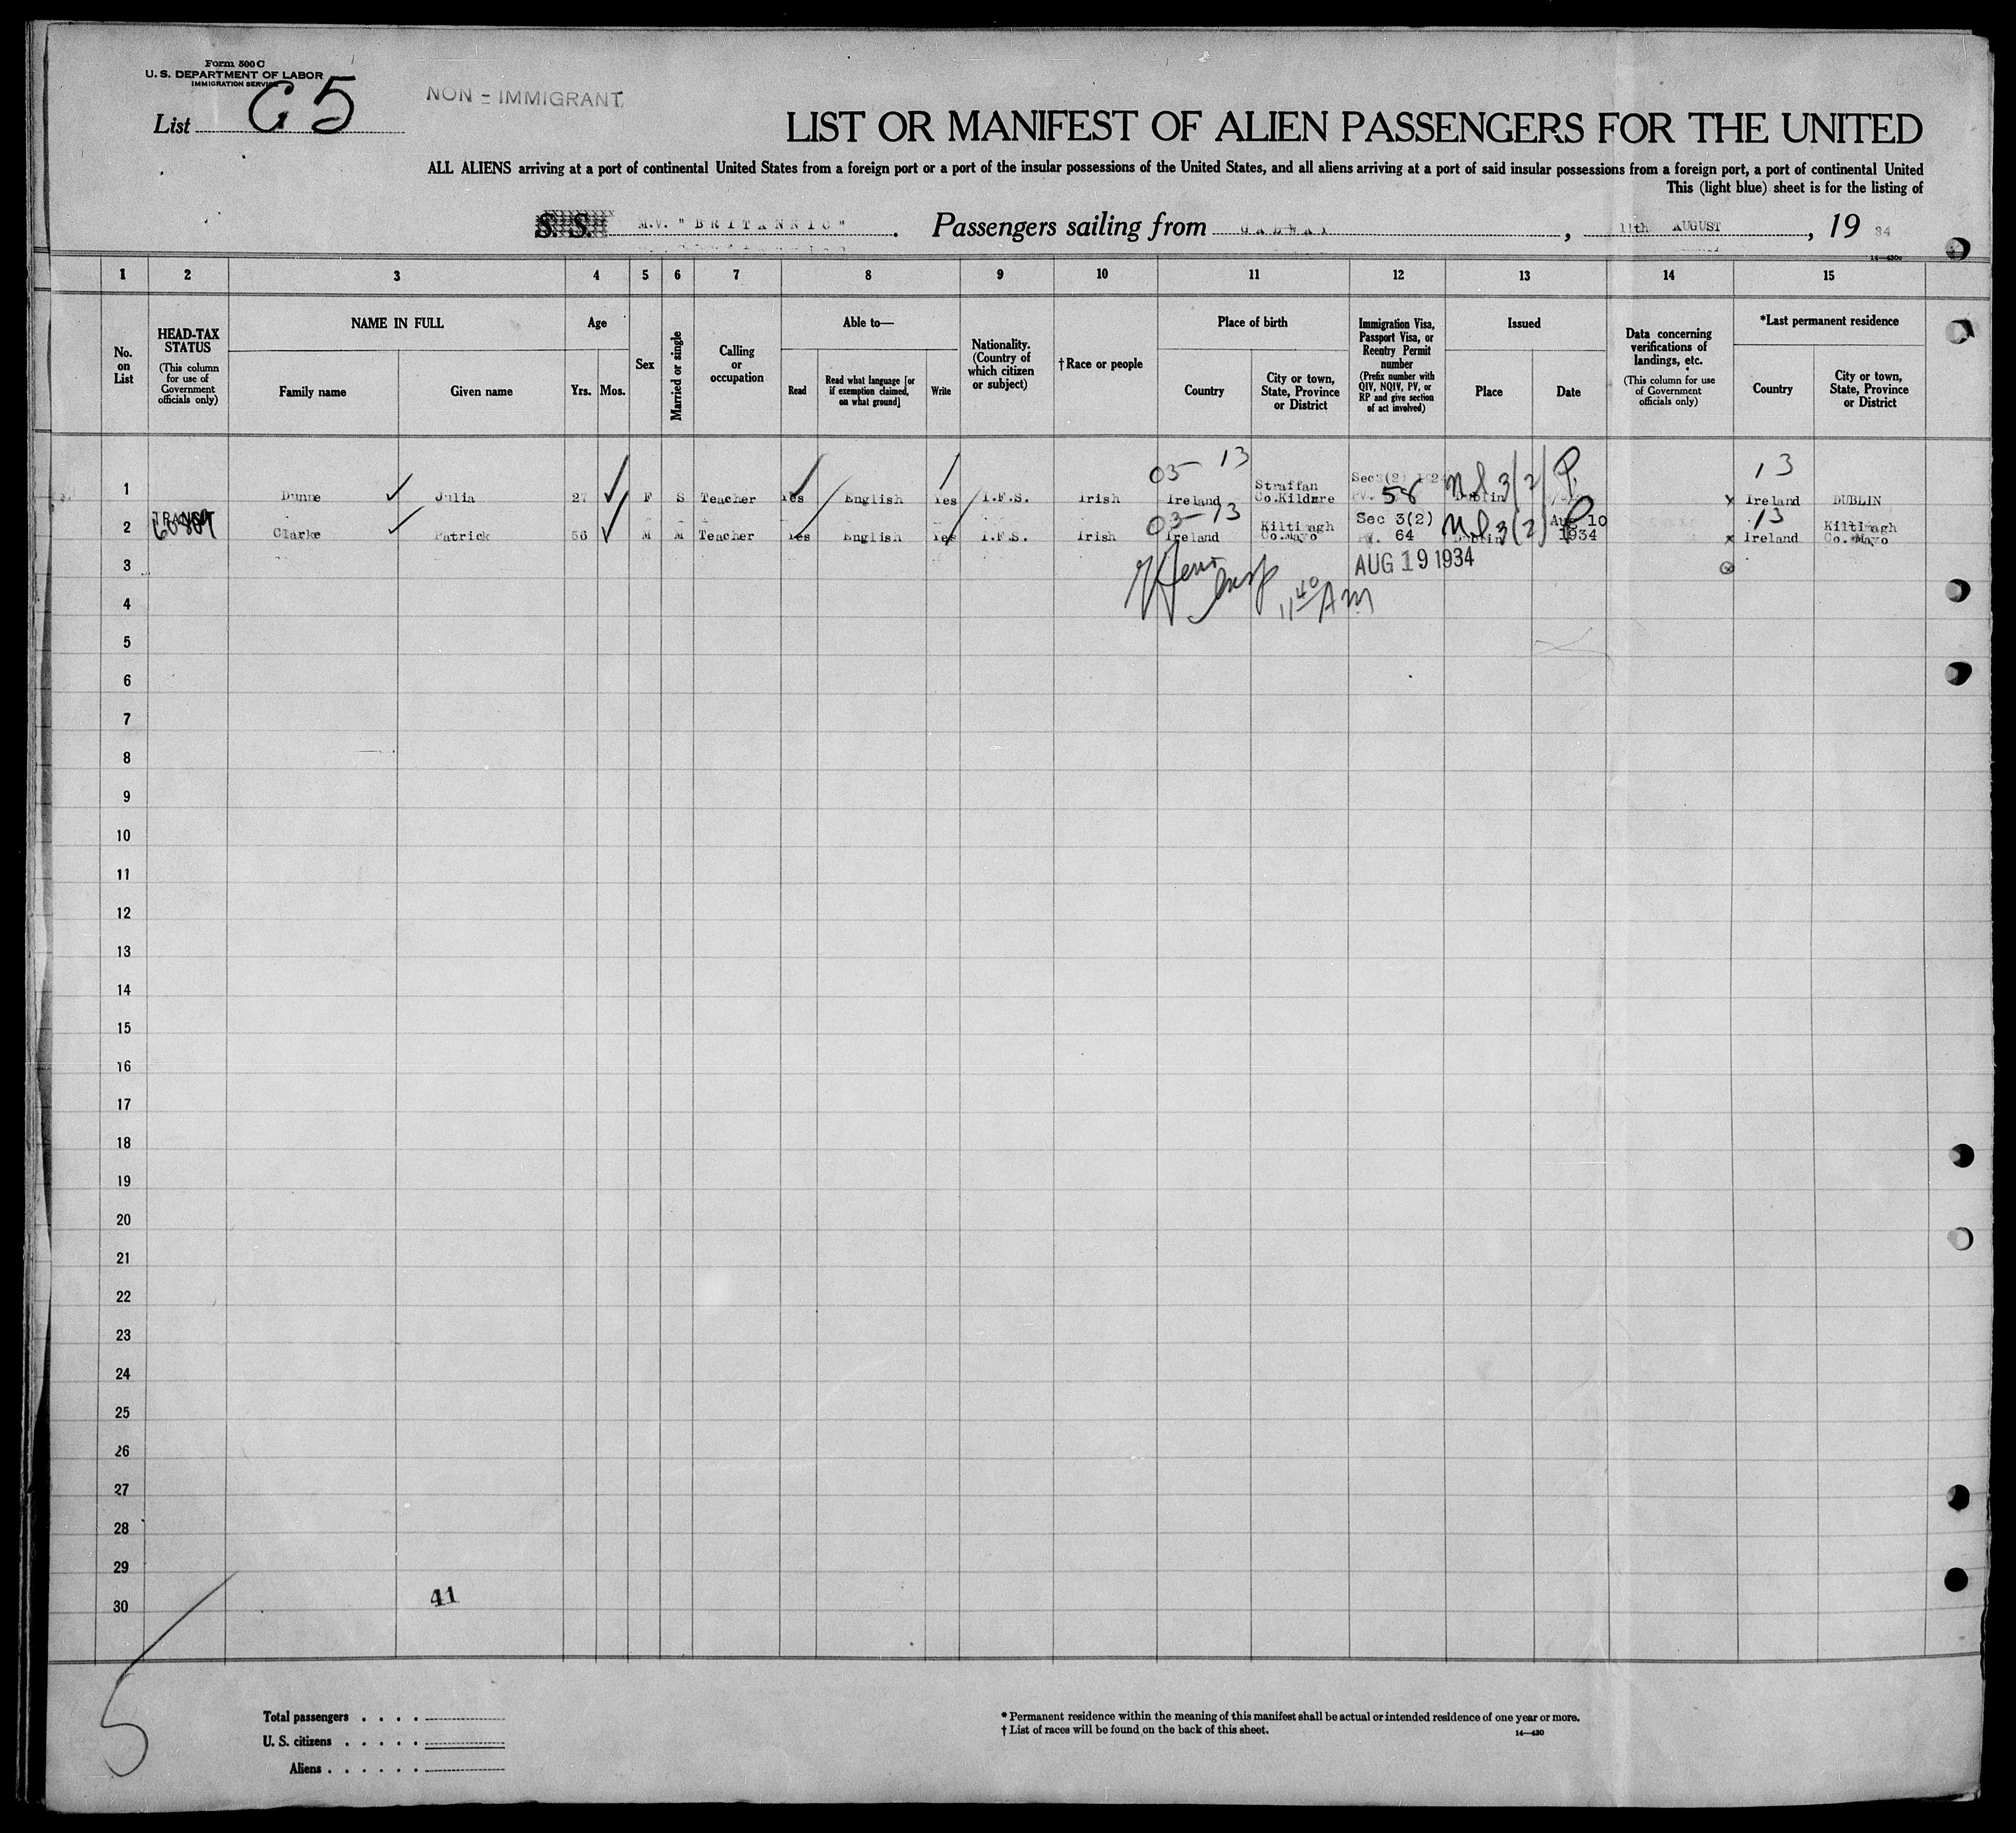 Form 500 C
U. S. DEPARTMENT OF LABOR
IMMIGRATION SERVICE
List G5
NON - IMMIGRANT
LIST OR MANIFEST OF ALIEN PASSENGERS FOR THE UNITED
ALL ALIENS arriving at a port of continental United States from a foreign port or a port of the insular possessions of the United States, and all aliens arriving at a port of said insular possessions from a foreign port, a port of continental United
This (light blue) sheet is for the listing of
S. S. M.V. "BRITANNIC". Passengers sailing from GALWAY, 11th AUGUST, 19 34
14—430c
1 2 3 4 5 6 7 8 9 10 11 12 13 14 15
No. on List
HEAD-TAX STATUS
(This column for use of Government officials only)
NAME IN FULL
Family name Given name
Age
Yrs. Mos.
Sex
Married or single
Calling or occupation
Able to—
Read
Read what language [or if exemption claimed, on what ground]
Write
Nationality. (Country of which citizen or subject)
† Race or people
Place of birth
Country
City or town, State, Province or District
Immigration Visa, Passport Visa, or Reentry Permit number
(Prefix number with QIV, NQIV, PV, or RP and give section of act involved)
Issued
Place Date
Data concerning verifications of landings, etc.
(This column for use of Government officials only)
*Last permanent residence
Country
City or town, State, Province or District
05 13 13
1 Dunne Julia 27 F S Teacher Yes English Yes I.F.S. Irish Ireland Straffan Co.Kildare Sec 3(2) PV. 58 Dublin 3(2) P Ireland DUBLIN
TRANSIT
03-13 13
2 Clarke Patrick 56 M M Teacher Yes English Yes I.F.S. Irish Ireland Kiltimagh Co.Mayo Sec 3(2) PV. 64 Dublin 3(2) Aug 10 1934 Ireland Kiltimagh Co. Mayo
3 AUG 19 1934
4 11 40 AM
5
6
7
8
9
10
11
12
13
14
15
16
17
18
19
20
21
22
23
24
25
26
27
28
29
30
41
5
Total passengers . . . .
U. S. citizens . . . . .
Aliens . . . . . .
* Permanent residence within the meaning of this manifest shall be actual or intended residence of one year or more.
† List of races will be found on the back of this sheet.
14—430